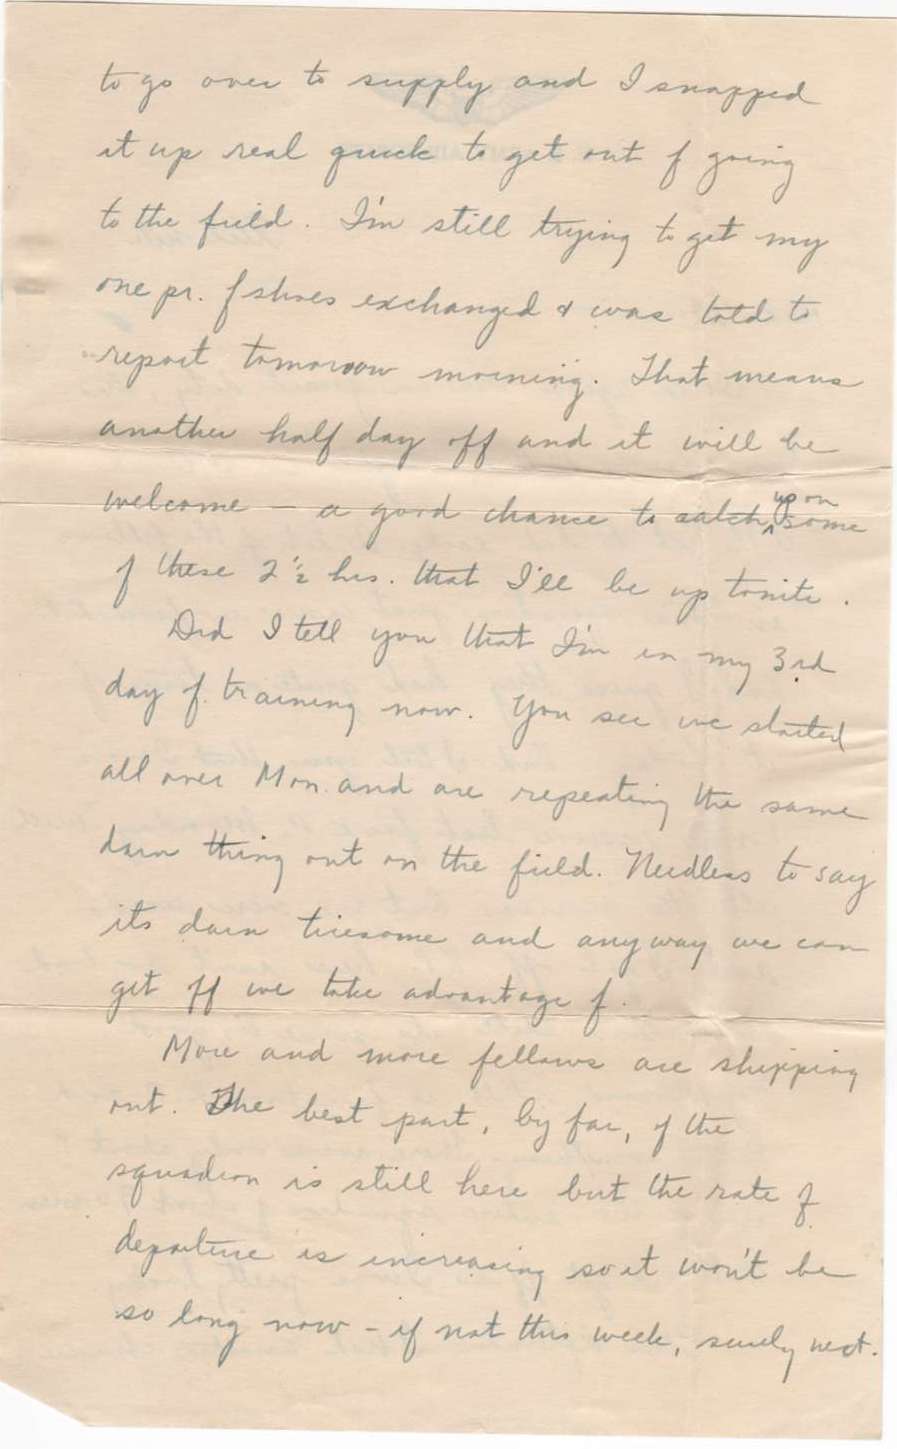 to go over to supply and I snapped
it up real quick to get out of going
to the field. I'm still trying to get my
one pr. of shoes exchanged & was told to
report tomorrow morning. That means
another half day off and it will be
welcome – a good chance to catch ^ up on some
of these 2 1/2 hrs. that I'll be up tonite.
Did I tell you that I'm in my 3rd
day of training now. You see we started
all over Mon. and are repeating the same
darn thing out on the field. Needless to say
its darn tiresome and anyway we can
get off we take advantage of.
More and more fellows are shipping
out. The best part, by far, of the
squadron is still here but the rate of
departure is increasing so it won't be
so long now – if not this week, surely next.